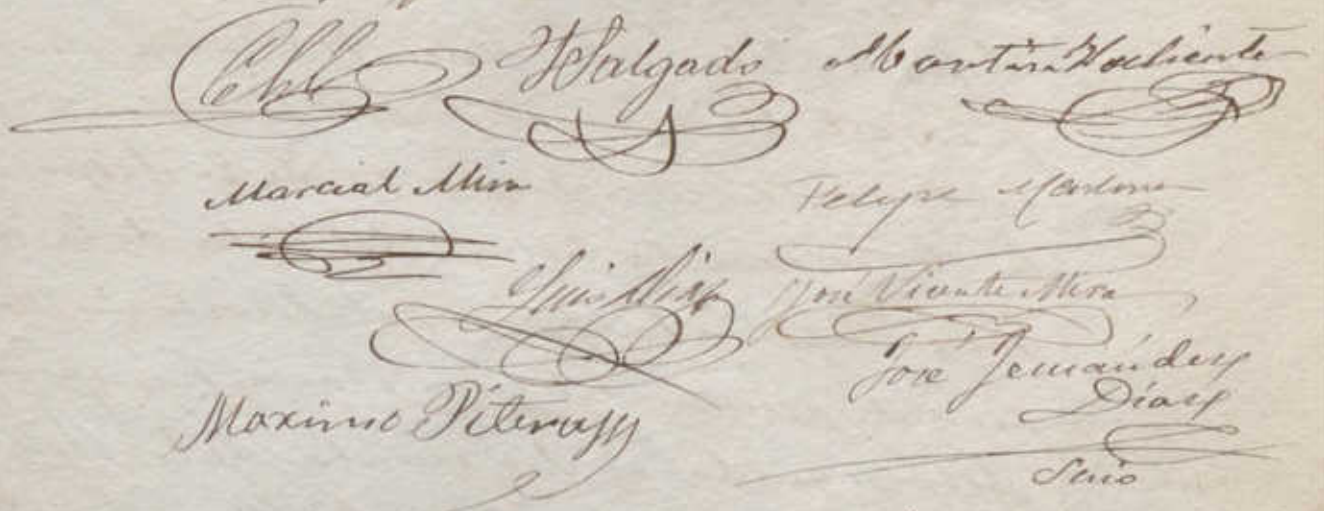 Salgado Martin Valiente
Marcial Mira Felipe
Luis Mira José Vicente Mira
José Fernández
Díaz
Maximo
Srio